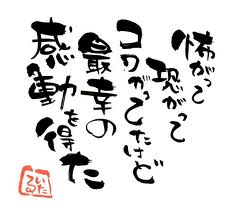 怖がって
恐がって
コワがってたけど
最幸の
感動を得た